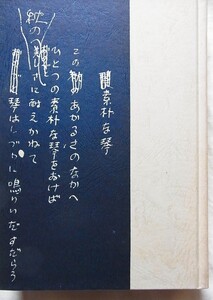 素朴な琴
この あかるさのなかへ
ひとつの素朴な琴をおけば
秋の さに耐えかねて
琴はしづかに鳴りいだすだらう